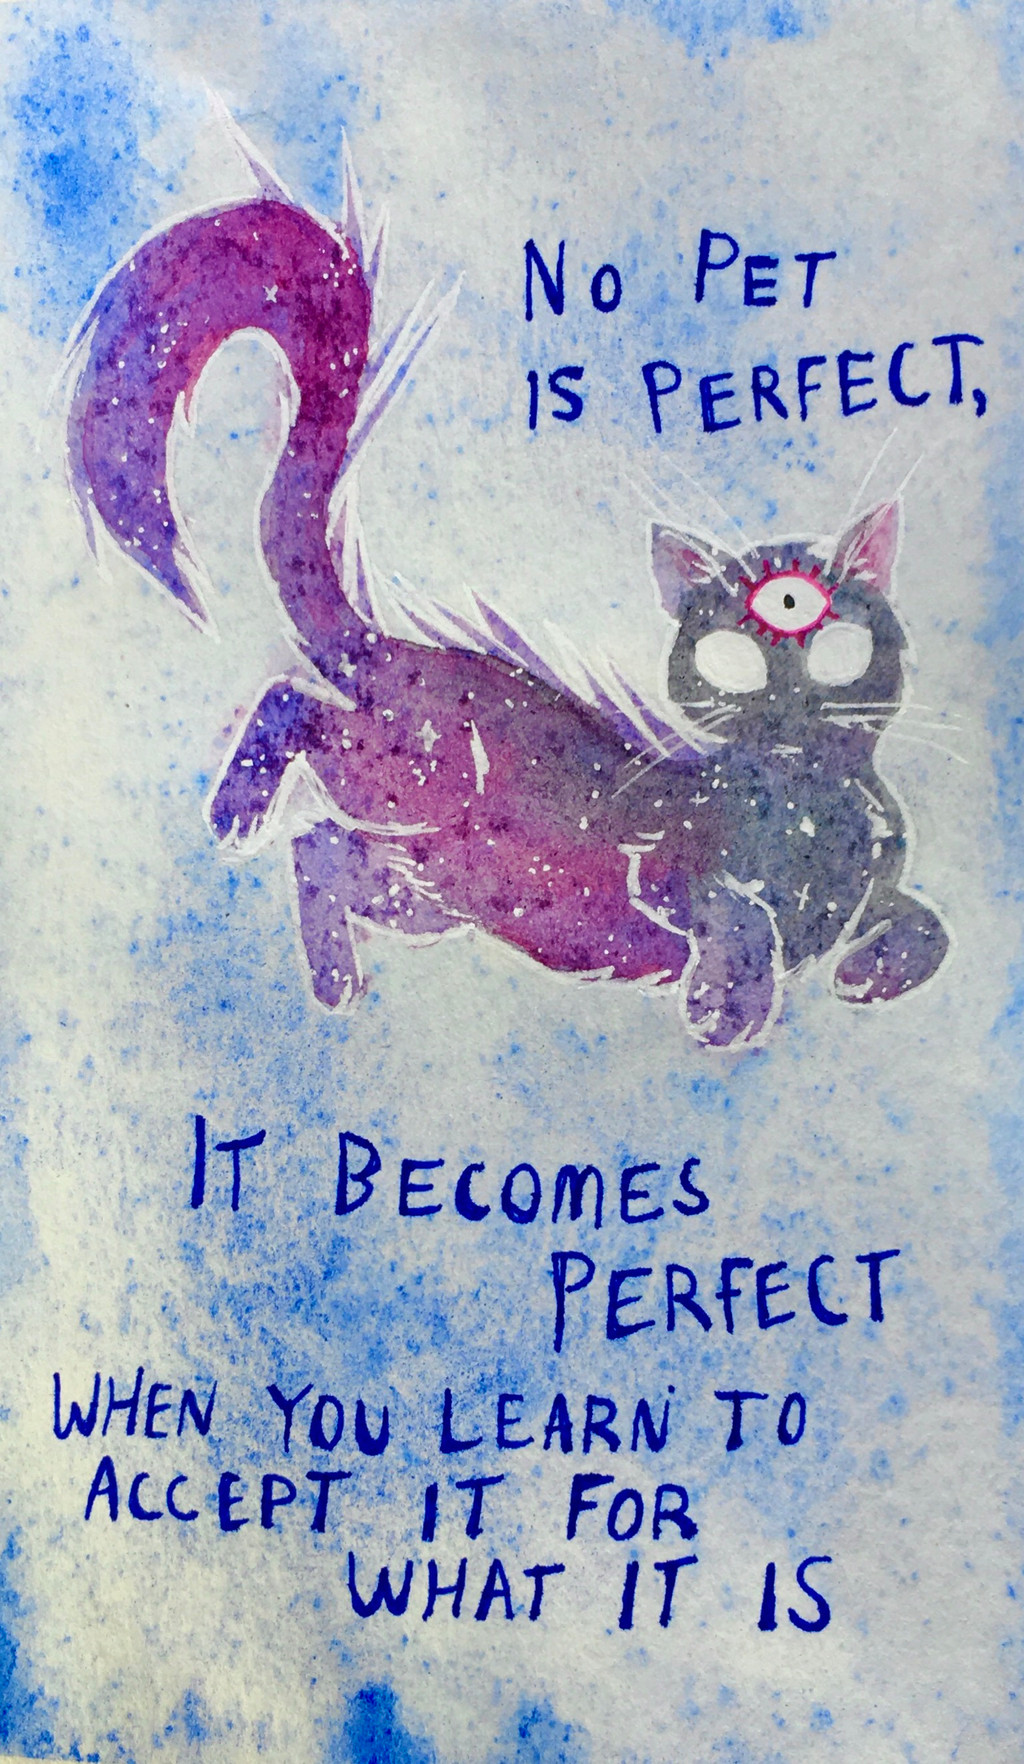 NO PET
IS PERFECT,
IT BECOMES
PERFECT
WHEN YOU LEARN TO
ACCEPT IT FOR
WHAT IT IS